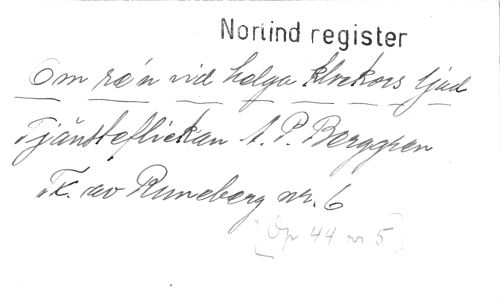 Norlind register
Om rê'n vid helga klockors ljud
Tjänsteflickan A. P. Berggren
Tx. av Runeberg nr. 6
[Op 44 nr 5]